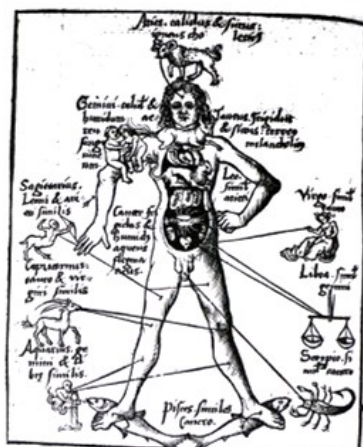 Aries. calidus & siccus:
igneus cho lericus
Gemini. calid' &
humidum ae
reu
sangui
neum
Taurus frigidus
& siccus: terreus
melancholicus
Leo.
similis
arieti
Sagitarius.
Leoni & ari
eti similis
Cancer fri
gidus &
humidus
aqueus
flegma
ticus
Virgo. simil'
tauro
Capricornus:
tauro & vir
gini similis
Libra. similis
gemini
Aquarius. ge
mini & li
bre similis.
Scorpio. si
milis cancro
Pisces similes
Cancro.